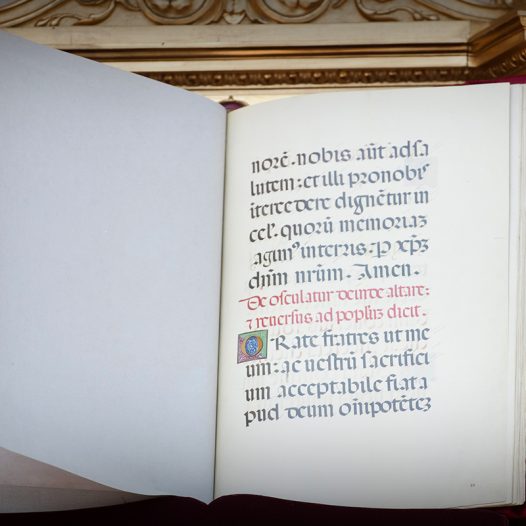 norē. nobis aūt ad sa
lutem: et illi pro nobis
itercedere dignētur in
cel'. quorū memoriaȝ
agimꝰ interris. P xp̄ȝ
dn̄m nr̄um. Amen.
De osculatur deinde altare:
⁊ reuersus ad popluȝ dicit.
ORate fratres ut me
um: ac uestrū sacrifici
um acceptabile fiat a
pud deum om̄ipotētēȝ